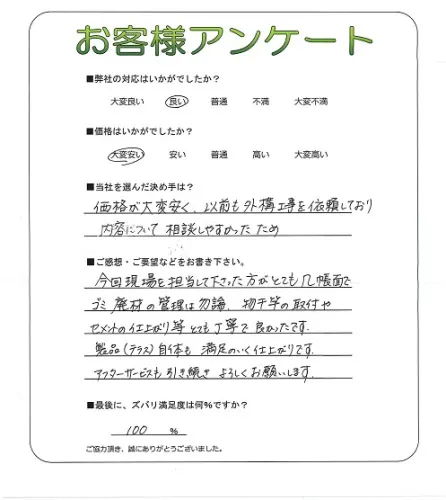 お客様アンケート
■弊社の対応はいかがでしたか？
大変良い 良い 普通 不満 大変不満
■価格はいかがでしたか？
大変安い 安い 普通 高い 大変高い
■当社を選んだ決め手は？
価格が大変安く、以前も外構工事を依頼しており
内容について相談しやすかったため
■ご感想・ご要望などをお書き下さい。
今回現場を担当して下さった方がとても几帳面で
ゴミ廃材の管理は勿論、物干竿の取付や
セメントの仕上がり等とても丁寧で良かったです。
製品(テラス)自体も満足のいく仕上がりです。
アフターサービスも引き続きよろしくお願いします。
■最後に、ズバリ満足度は何%ですか？
100 %
ご協力頂き、誠にありがとうございました。